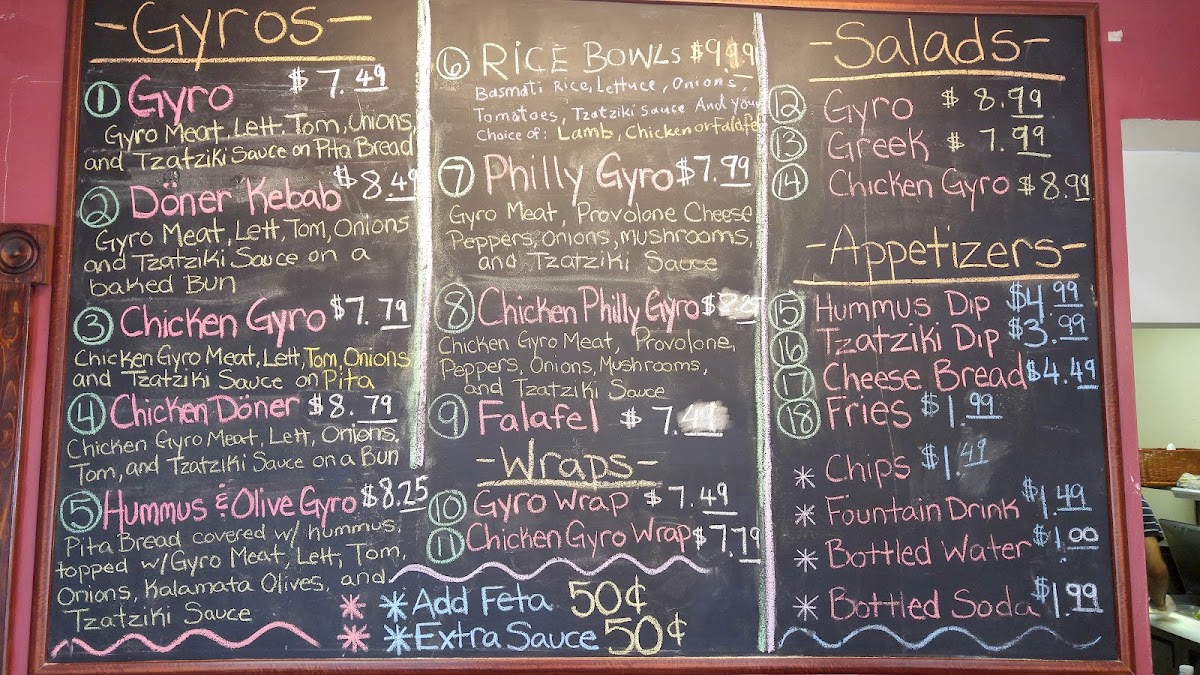 -Gyros-
① Gyro $7.49
Gyro Meat, Lett, Tom, Onions,
and Tzatziki Sauce on Pita Bread
② Döner Kebab $8.49
Gyro Meat, Lett, Tom, Onions
and Tzatziki Sauce on a
baked Bun
③ Chicken Gyro $7.79
Chicken Gyro Meat, Lett, Tom, Onions
and Tzatziki Sauce on Pita
④ Chicken Döner $8.79
Chicken Gyro Meat, Lett, Onions,
Tom, and Tzatziki Sauce on a Bun
⑤ Hummus & Olive Gyro $8.25
Pita Bread covered w/ hummus,
topped w/Gyro Meat, Lett, Tom,
Onions, Kalamata Olives, and
Tzatziki Sauce
⑥ Rice Bowls $9.99
Basmati Rice, Lettuce, Onions,
Tomatoes, Tzatziki Sauce And your
Choice of: Lamb, Chicken or Falafel
⑦ Philly Gyro $7.99
Gyro Meat, Provolone Cheese
Peppers, Onions, Mushrooms,
and Tzatziki Sauce
⑧ Chicken Philly Gyro
Chicken Gyro Meat, Provolone,
Peppers, Onions, Mushrooms,
and Tzatziki Sauce
⑨ Falafel $7.49
-Wraps-
⑩ Gyro Wrap $7.49
⑪ Chicken Gyro Wrap $7.79
* * Add Feta 50¢
* * Extra Sauce 50¢
-Salads-
⑫ Gyro $8.99
⑬ Greek $7.99
⑭ Chicken Gyro $8.99
-Appetizers-
⑮ Hummus Dip $4.99
⑯ Tzatziki Dip $3.99
⑰ Cheese Bread $4.49
⑱ Fries $1.99
* Chips $1.49
* Fountain Drink $1.49
* Bottled Water $1.00
* Bottled Soda $1.99